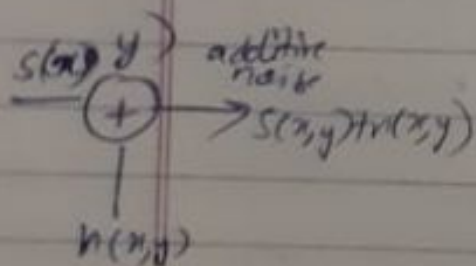 s(x, y)
additive
noise
+
s(x,y)+n(x,y)
n(x,y)